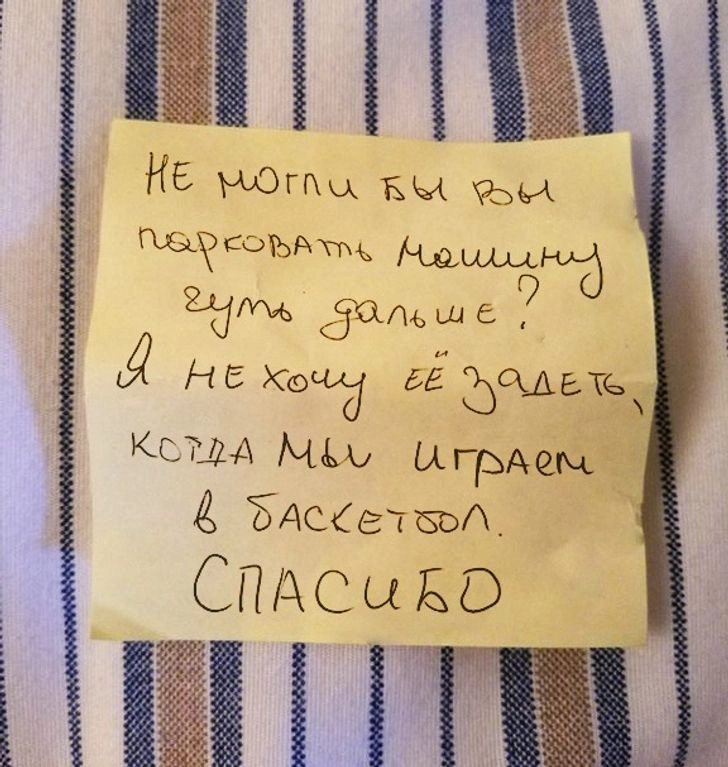 НЕ могли бы вы
парковать машину
чуть дальше?
Я НЕ хочу ЕЁ задеть,
когда мы играем
в баскетбол.
СПАСИБО